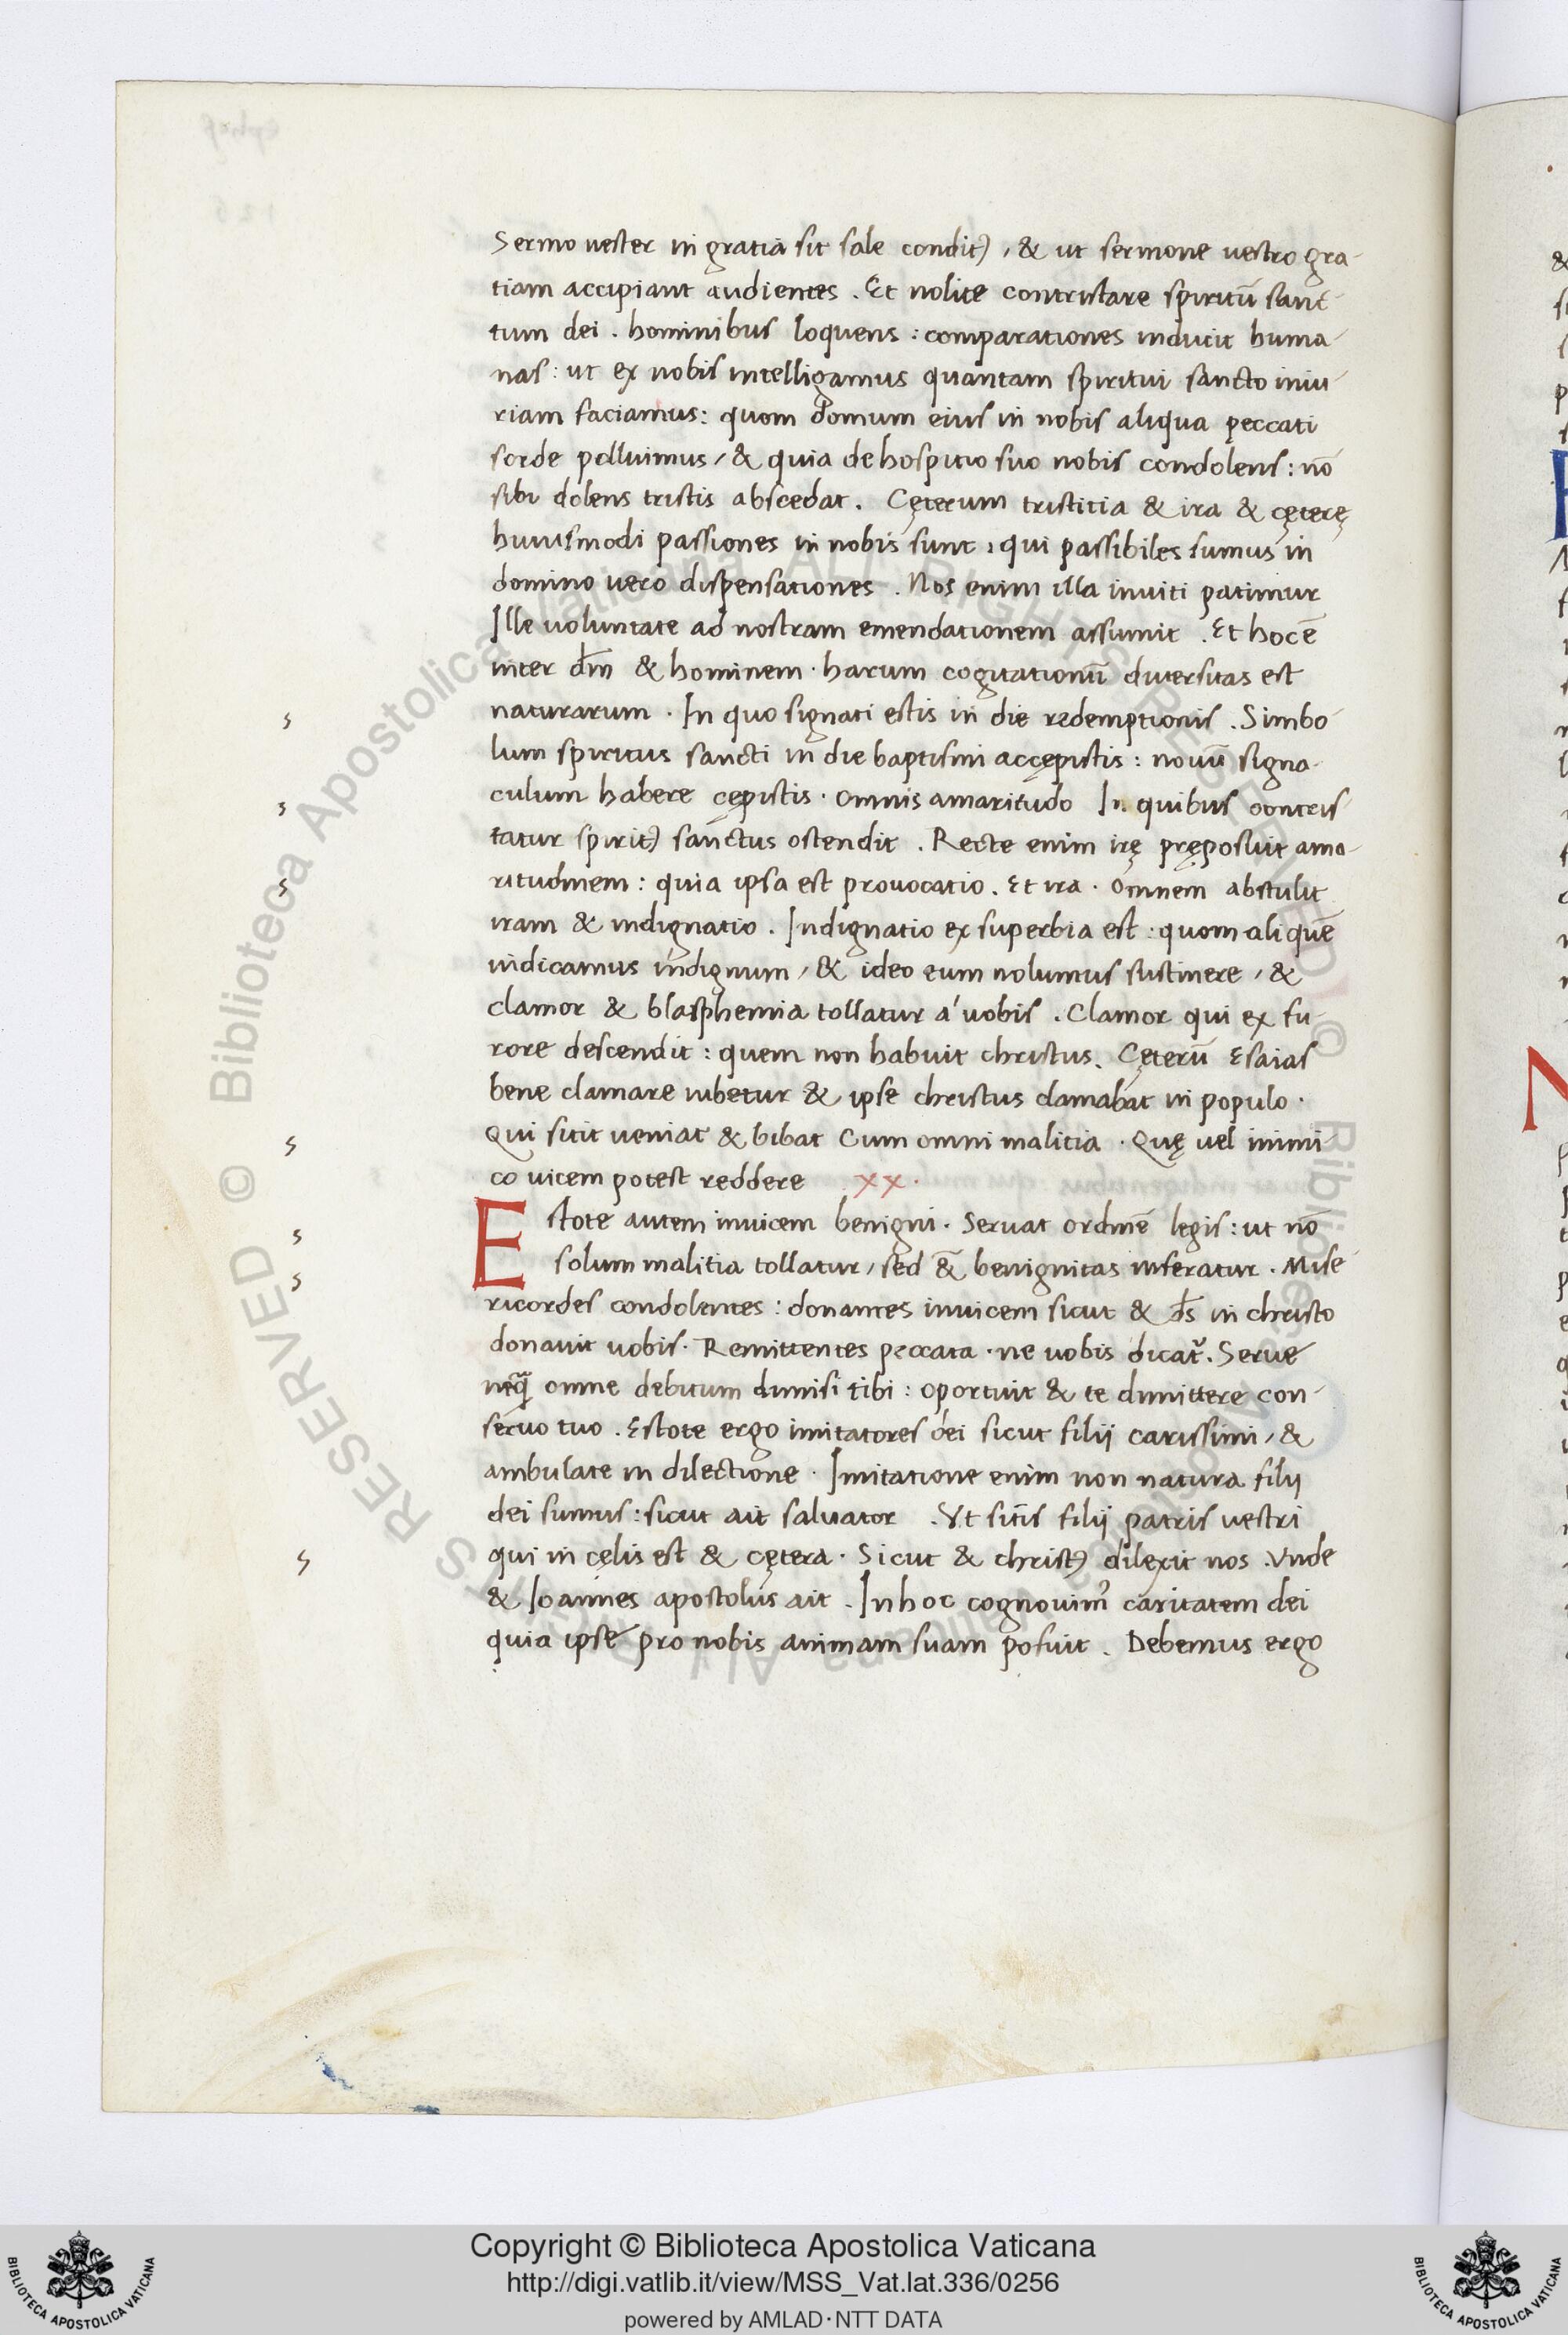 Sermo uester in gratiā sit sale conditꝰ, & ut sermone uestro gra-
tiam accipiant audientes . Et nolite contristare spiritū sanc-
tum dei . hominibus loquens : comparationes inducit huma-
nas : ut ex nobis intelligamus quantam spiritui sancto iniu-
riam faciamus : quom domum eius in nobis aliqua peccati
sorde polluimus, & quia de hospitio suo nobis condolens : nō
sibi dolens tristis abscedat . Cęterum tristitia & ira & cęterę
huiusmodi passiones in nobis sunt , qui passibiles sumus in
domino uero dispensationes . Nos enim illa inuiti patimur
Ille uoluntate ad nostram emendationem assumit . Et hoc ē
inter dm̄ & hominem . harum cogitationū diuersitas est
naturarum . In quo signati estis in die redemptionis . Simbo-
lum spiritus sancti in die baptismi accępistis : nouū signa-
culum habere cępistis . omnis amaritudo In quibus contris-
tatur spiritꝰ sanctus ostendit . Recte enim irę pręposuit ama-
ritudinem : quia ipsa est prouocatio . Et ira . omnem abstulit
iram & indignatio . Indignatio ex superbia est : quom aliquē
indicamus indignum, & ideo eum nolumus sustinere, &
clamor & blasphemia tollatur á uobis . Clamor qui ex fu-
rore descendit : quem non habuit christus . Cęterū Esaias
bene clamare iubetur & ipse christus clamabat in populo .
Qui sitit ueniat & bibat Cum omni malitia . Quę uel inimi-
co uicem potest reddere xx.
Estote autem inuicem benigni . Seruat ordinē legis : ut nō
solum malitia tollatur, sed &̄ benignitas inferatur . Mise-
ricordes condolentes : donantes inuicem sicut & ds̄ in christo
donauit uobis . Remittentes peccata . ne uobis dicat᷑ . Serue
neq̄ omne debitum dimisi tibi : oportuit & te dimittere con-
seruo tuo . Estote ergo imitatores dei sicut filij carissimi, &
ambulate in dilectione . Imitatione enim non natura filij
dei sumus : sicut ait saluator . Vt sitis filij patris uestri
qui in cęlis est & cętera . Sicut & christꝰ dilexit nos . Vnde
& Ioannes apostolus ait . In hoc cognouimꝰ caritatem dei
quia ipse pro nobis animam suam posuit . Debemus ergo
Copyright © Biblioteca Apostolica Vaticana
http://digi.vatlib.it/view/MSS_Vat.lat.336/0256
powered by AMLAD·NTT DATA